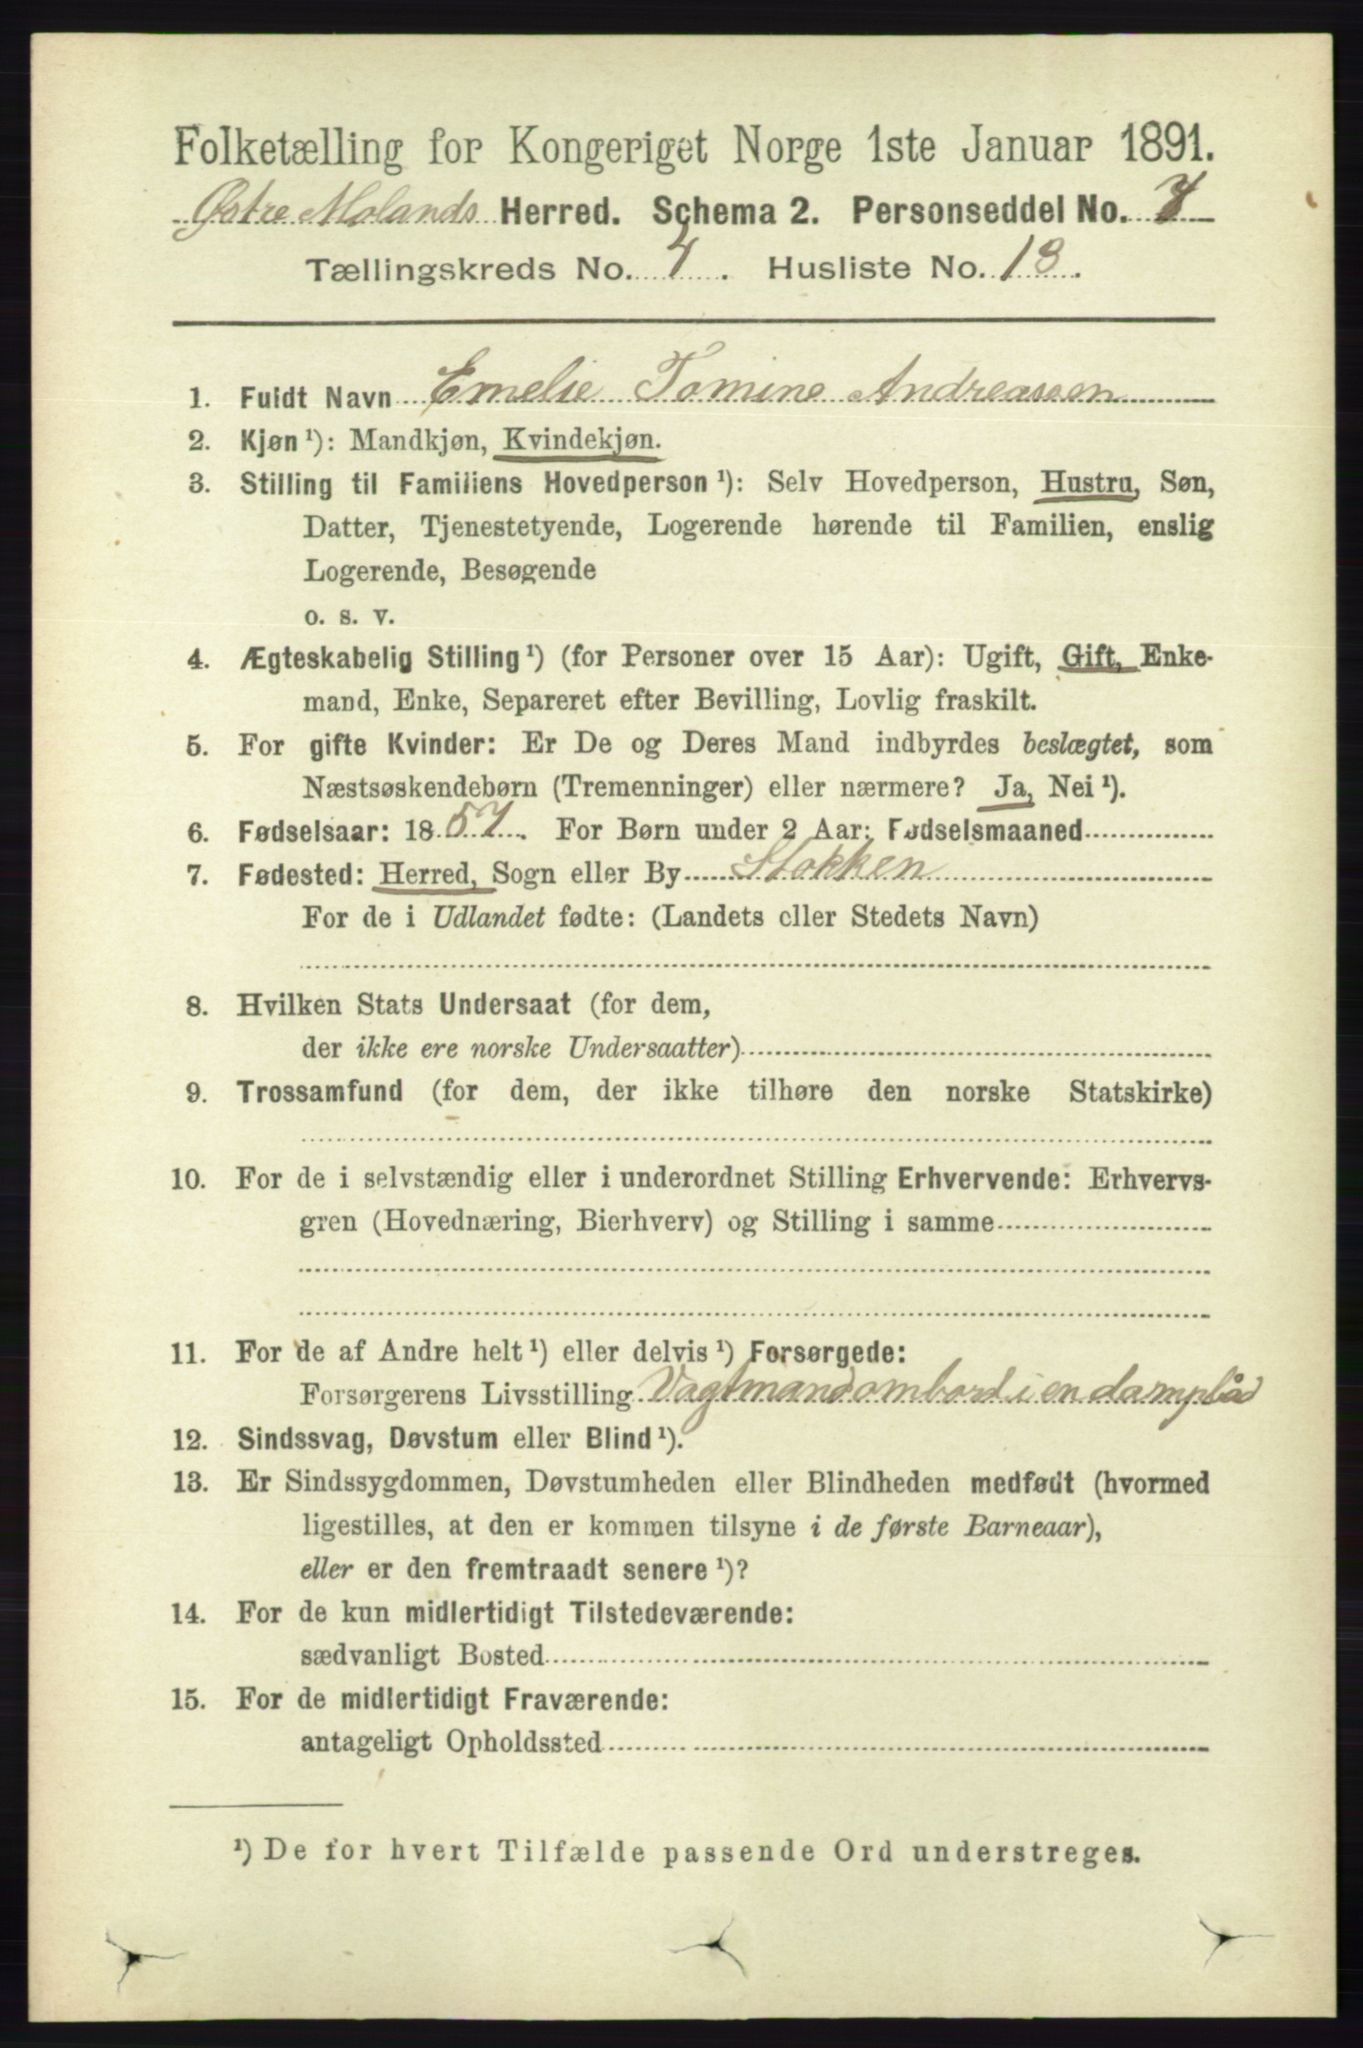 Folketælling for Kongeriget Norge 1ste Januar 1891.
Østre Molands Herred. Schema 2. Personseddel No. 7
Tællingskreds No. 4. Husliste No. 18.
1. Fuldt Navn Emelie Tomine Andreassen
2. Kjøn ¹): Mandkjøn, Kvindekjøn.
3. Stilling til Familiens Hovedperson ¹): Selv Hovedperson, Hustru, Søn,
Datter, Tjenestetyende, Logerende hørende til Familien, enslig
Logerende, Besøgende
o. s. v.
4. Ægteskabelig Stilling ¹) (for Personer over 15 Aar): Ugift, Gift, Enke-
mand, Enke, Separeret efter Bevilling, Lovlig fraskilt.
5. For gifte Kvinder: Er De og Deres Mand indbyrdes beslægtet, som
Næstsøskendebørn (Tremenninger) eller nærmere? Ja, Nei ¹).
6. Fødselsaar: 1857. For Børn under 2 Aar: Fødselsmaaned
7. Fødested: Herred, Sogn eller By Stokken
For de i Udlandet fødte: (Landets eller Stedets Navn)
8. Hvilken Stats Undersaat (for dem,
der ikke ere norske Undersaatter)
9. Trossamfund (for dem, der ikke tilhøre den norske Statskirke)
10. For de i selvstændig eller i underordnet Stilling Erhvervende: Erhvervs-
gren (Hovednæring, Bierhverv) og Stilling i samme
11. For de af Andre helt ¹) eller delvis ¹) Forsørgede:
Forsørgerens Livsstilling Vagtmand ombord i en dampbåd
12. Sindssvag, Døvstum eller Blind ¹).
13. Er Sindssygdommen, Døvstumheden eller Blindheden medfødt (hvormed
ligestilles, at den er kommen tilsyne i de første Barneaar),
eller er den fremtraadt senere ¹)?
14. For de kun midlertidigt Tilstedeværende:
sædvanligt Bosted
15. For de midlertidigt Fraværende:
antageligt Opholdssted
¹) De for hvert Tilfælde passende Ord understreges.